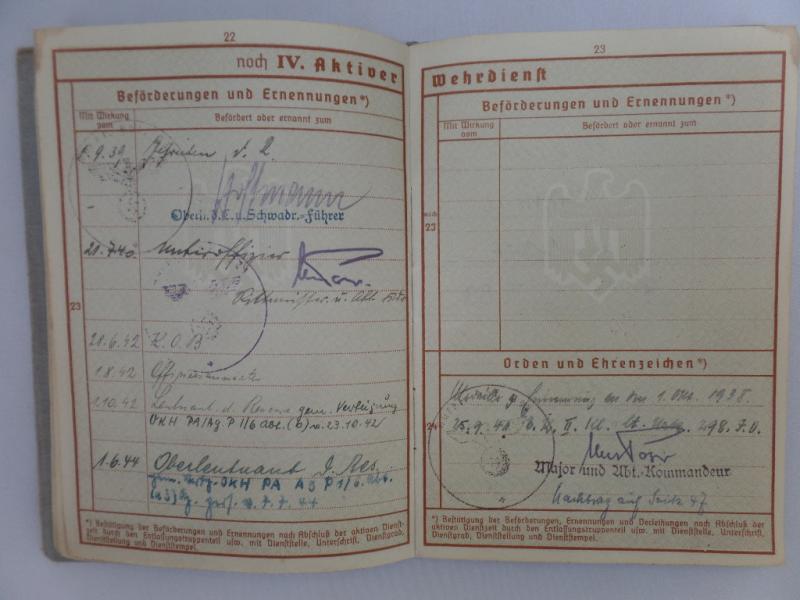 22
noch IV. Aktiver
Beförderungen und Ernennungen*)
Mit Wirkung vom
Befördert oder ernannt zum
9.39 Gefreiten d. R.
Hoffmann
Oberlt. d.R. u. Schwadr.-Führer
7.40 Unteroffizier
Rittmeister u. Abt. Kdr
23
6.42 K.O.B
1.8.42
1.10.42 Leutnant d. Reserve gem. Verfügung
OKH PA/Ag. P 1/6 Abt. (b) v. 23.10.42
1.6.44 Oberleutnant d. Res.
gem. Verfg. OKH PA Ag P 1/6. Abt.
7.7.44
*) Bestätigung der Beförderungen und Ernennungen nach Abschluß der aktinen Dienst-
zeit durch den Entlassungstruppenteil usw. mit Dienststelle, Unterschrift, Dienstgrad,
Dienststellung und Dienststempel.
23
Wehrdienst
Beförderungen und Ernennungen*)
Mit Wirkung vom
Befördert oder ernannt zum
noch
23
Orden und Ehrenzeichen*)
Medaille z. Erinnerung an den 1. Okt. 1938.
24
25.9.40 II. Kl. 298. I.D.
Major und Abt.-Kommandeur
Nachtrag auf Seite 47
*) Bestätigung der Beförderungen, Ernennungen und Verleihungen nach Abschluß der
aktiven Dienstzeit durch den Entlassungstruppenteil usw. mit Dienststelle, Unterschrift,
Dienstgrad, Dienststellung und Dienststempel.